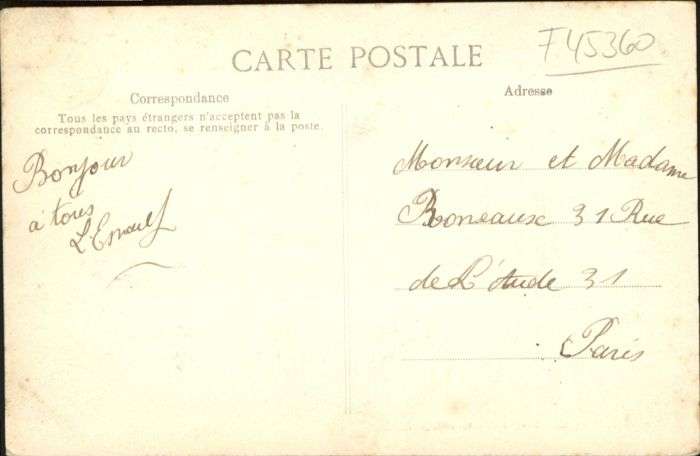 CARTE POSTALE
F45360
Correspondance
Tous les pays étrangers n'acceptent pas la
correspondance au recto, se renseigner à la poste.
Adresse
Bonjour
à tous
Monsieur et Madame
Boneaux 31 Rue
de L'Aude 31
Paris